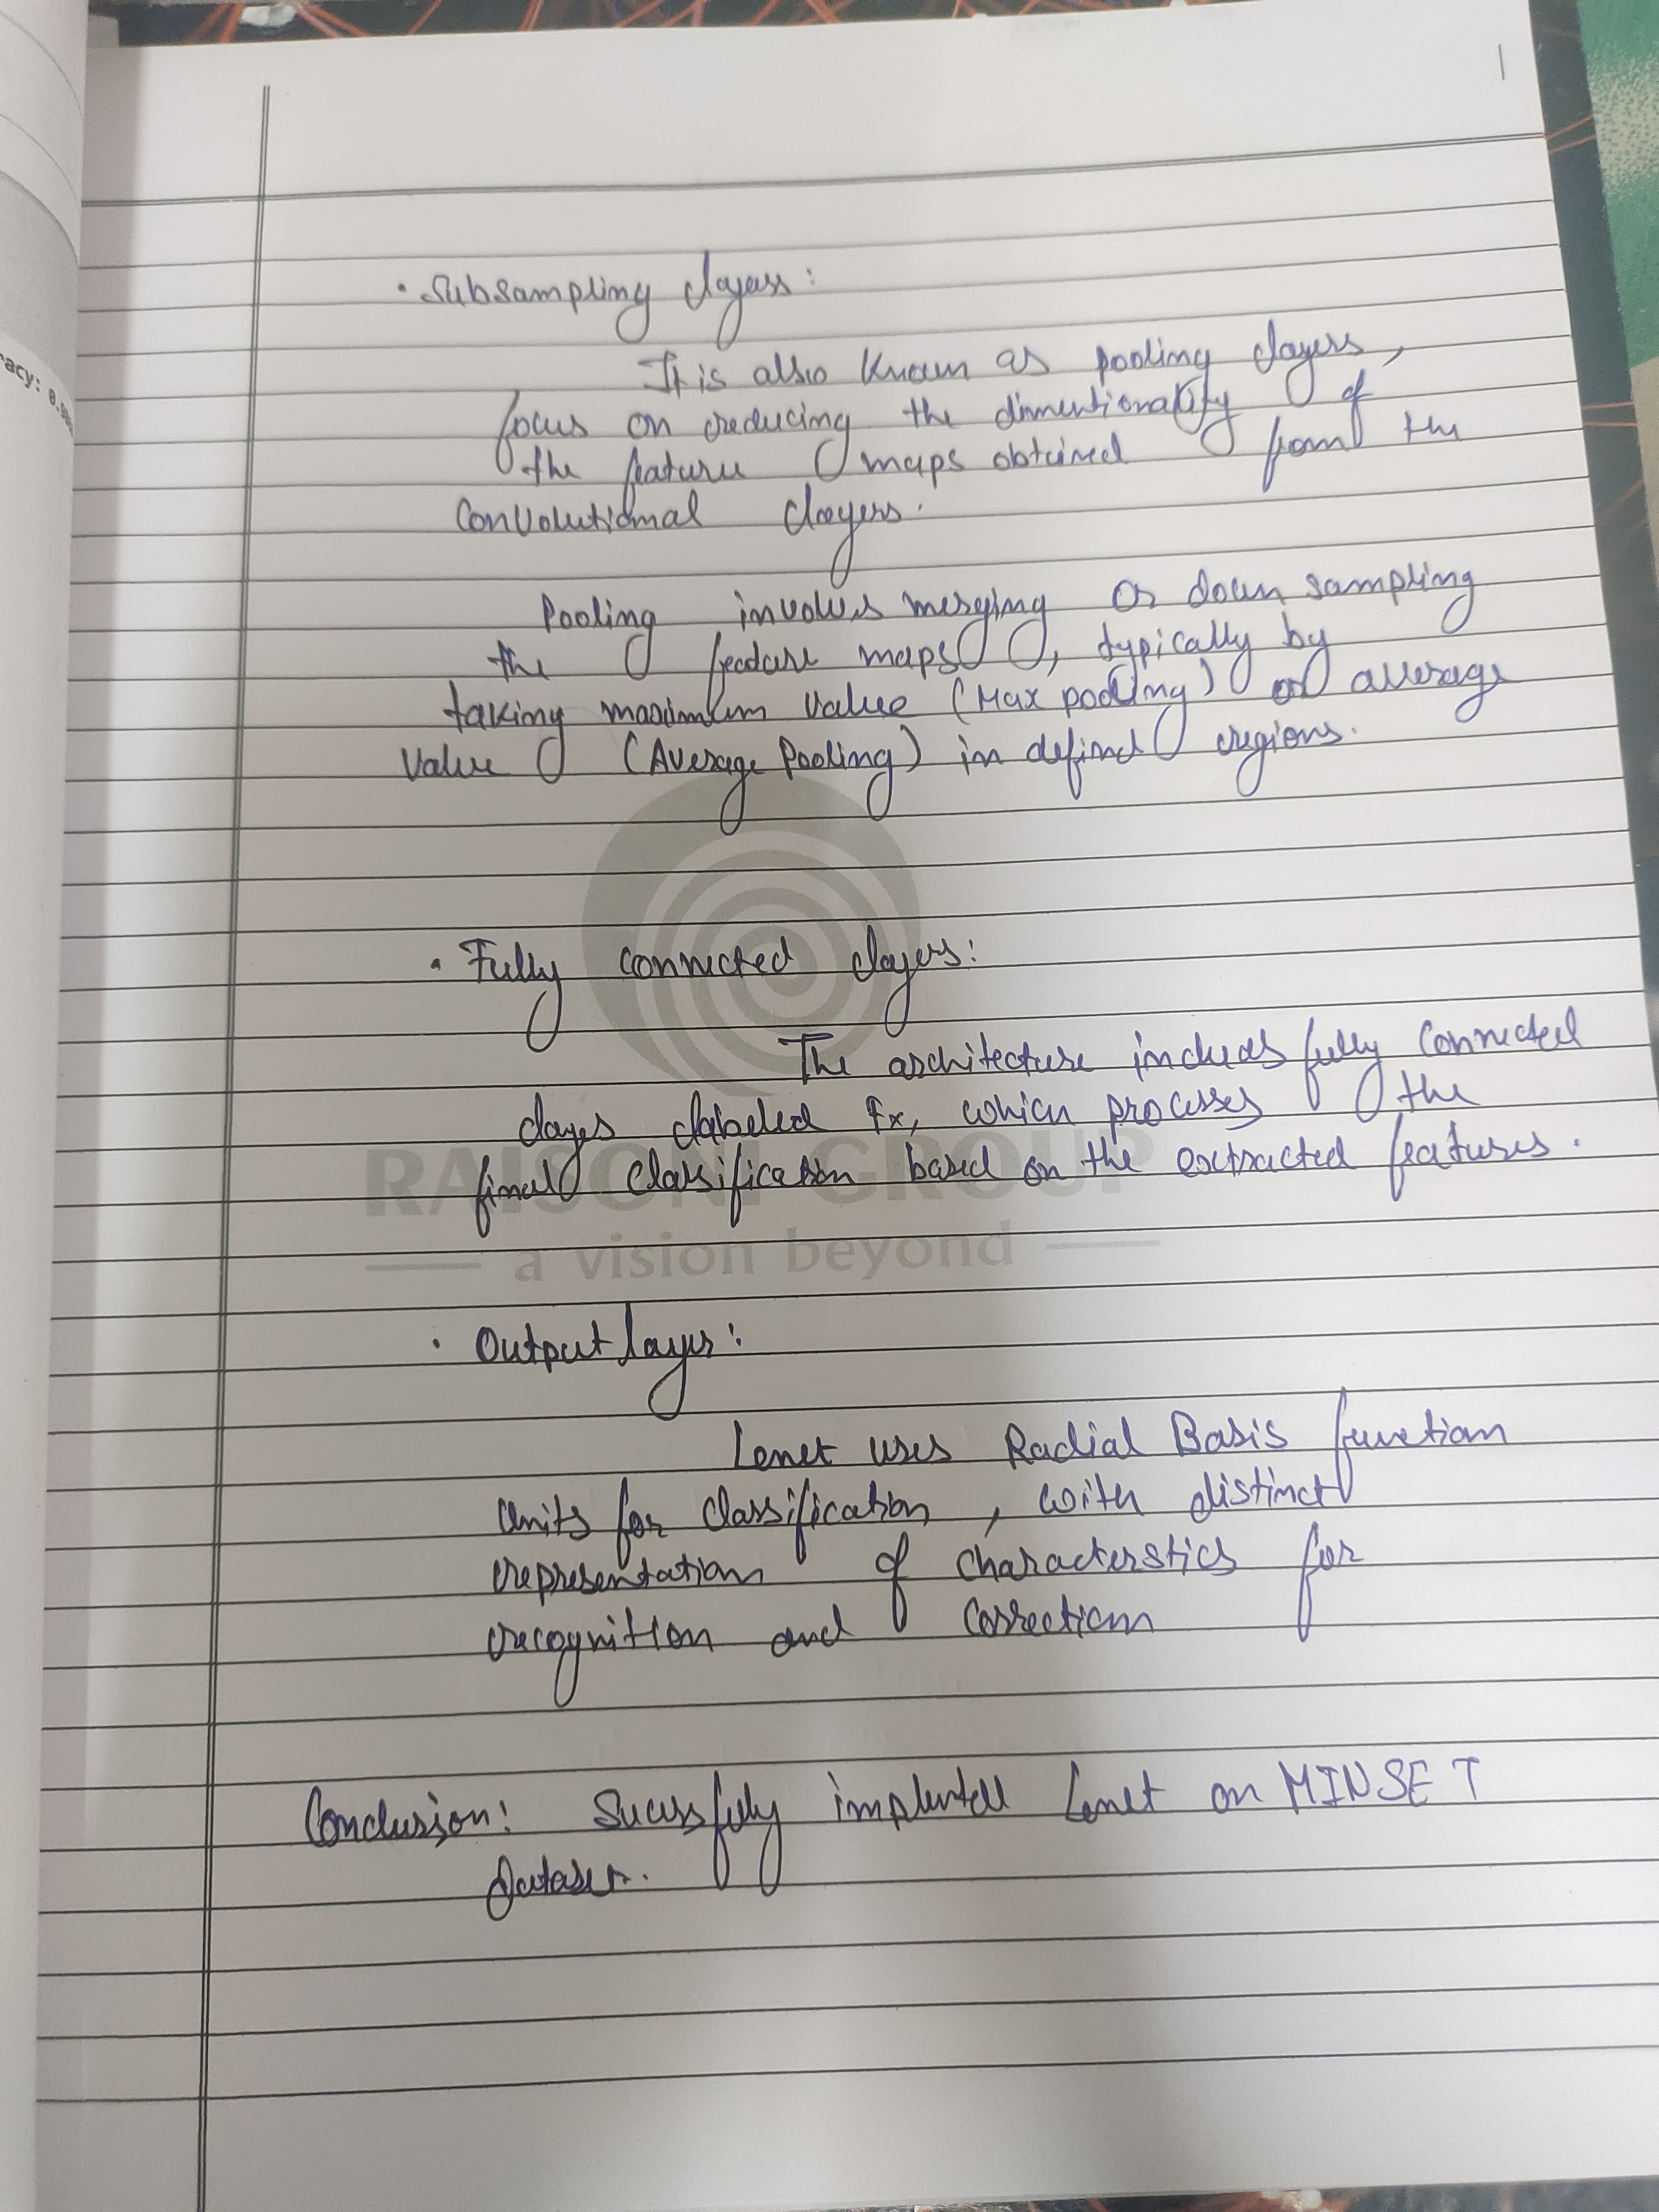 • Subsampling layers:
It is also known as pooling layers,
focus on reducing the dimentionality of
the feature maps obtained from the
Convolutional layers.
Pooling involves merging or down sampling
the feature maps, typically by
taking maximum value (Max pooling) or average
value (Average Pooling) in defined regions.
• Fully connected layers:
The architecture includes fully connected
layes labeled Fx, which processes the
final classification based on the extracted features.
RAISONI GROUP
a vision beyond
• Output layer:
Lenet uses Radial Basis function
units for classification, with distinct
representation of characterstics for
recognition and correction
Conclusion: Sucessfully Lenet on MINSET
Dataset.
racy: 0.